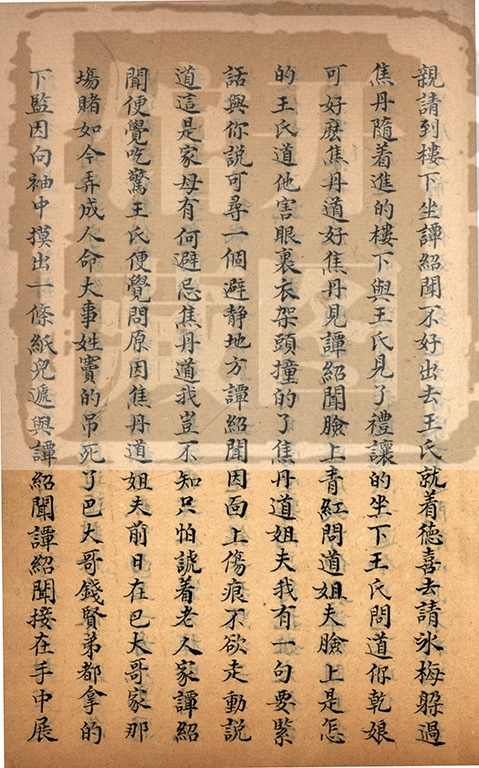 親請到樓下坐譚紹聞不好出去王氏就着德喜去請氷梅躱過
焦丹隨着進的樓下與王氏見了禮讓的坐下王氏問道你乾娘
可好麽焦丹道好焦丹見譚紹聞臉上青紅問道姐夫臉上是怎
的王氏道他害眼裏衣架頭撞的了焦丹道姐夫我有一句要緊
話與你說可尋一個避静地方譚紹聞因面上傷痕不欲走動說
道這是家母有何避忌焦丹道我豈不知只怕諕着老人家譚紹
聞便覺吃驚王氏便覺問原因焦丹道姐夫前日在巴大哥家那
塲賭如今弄成人命大事姓竇的吊死了巴大哥錢賢弟都拿的
下監因向袖中摸出一條紙兒遞與譚紹聞譚紹聞接在手中展